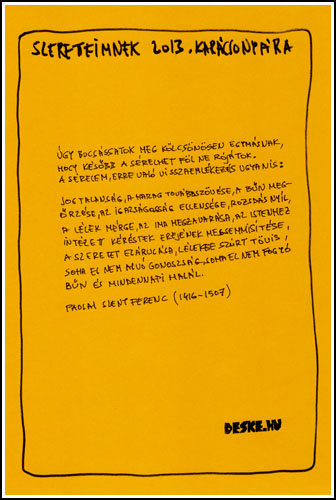 SZERETEIMNEK 2013. KARÁCSONYÁRA
ÚGY BOCSÁSSATOK MEG KÖLCSÖNÖSEN EGYMÁSNAK,
HOGY KÉSŐBB A SÉRELMET FÖL NE RÓJÁTOK.
A SÉRELEM, ERRE VALÓ VISSZAEMLÉKEZÉS UGYANIS:
JOGTALANSÁG, A HARAG TOVÁBBSZÖVÉSE, A BŰN MEG-
ŐRZÉSE, AZ IGAZSÁGOSSÁG ELLENSÉGE, ROZSDÁS NYÍL,
A LÉLEK MÉRGE, AZ IMA MEGZAVARÁSA, AZ ISTENHEZ
INTÉZETT KÉRÉSTEK EREJÉNEK MEGSEMMISÍTÉSE,
A SZERETET ELÁRULÁSA, LÉLEKBE SZÚRT TÖVIS,
SOHA EL NEM ALVÓ GONOSZSÁG, SOHA EL NEM FOGYÓ
BŰN ÉS MINDENNAPI HALÁL.
PAOLAI SZENT FERENC (1416-1507)
DESKE.HU